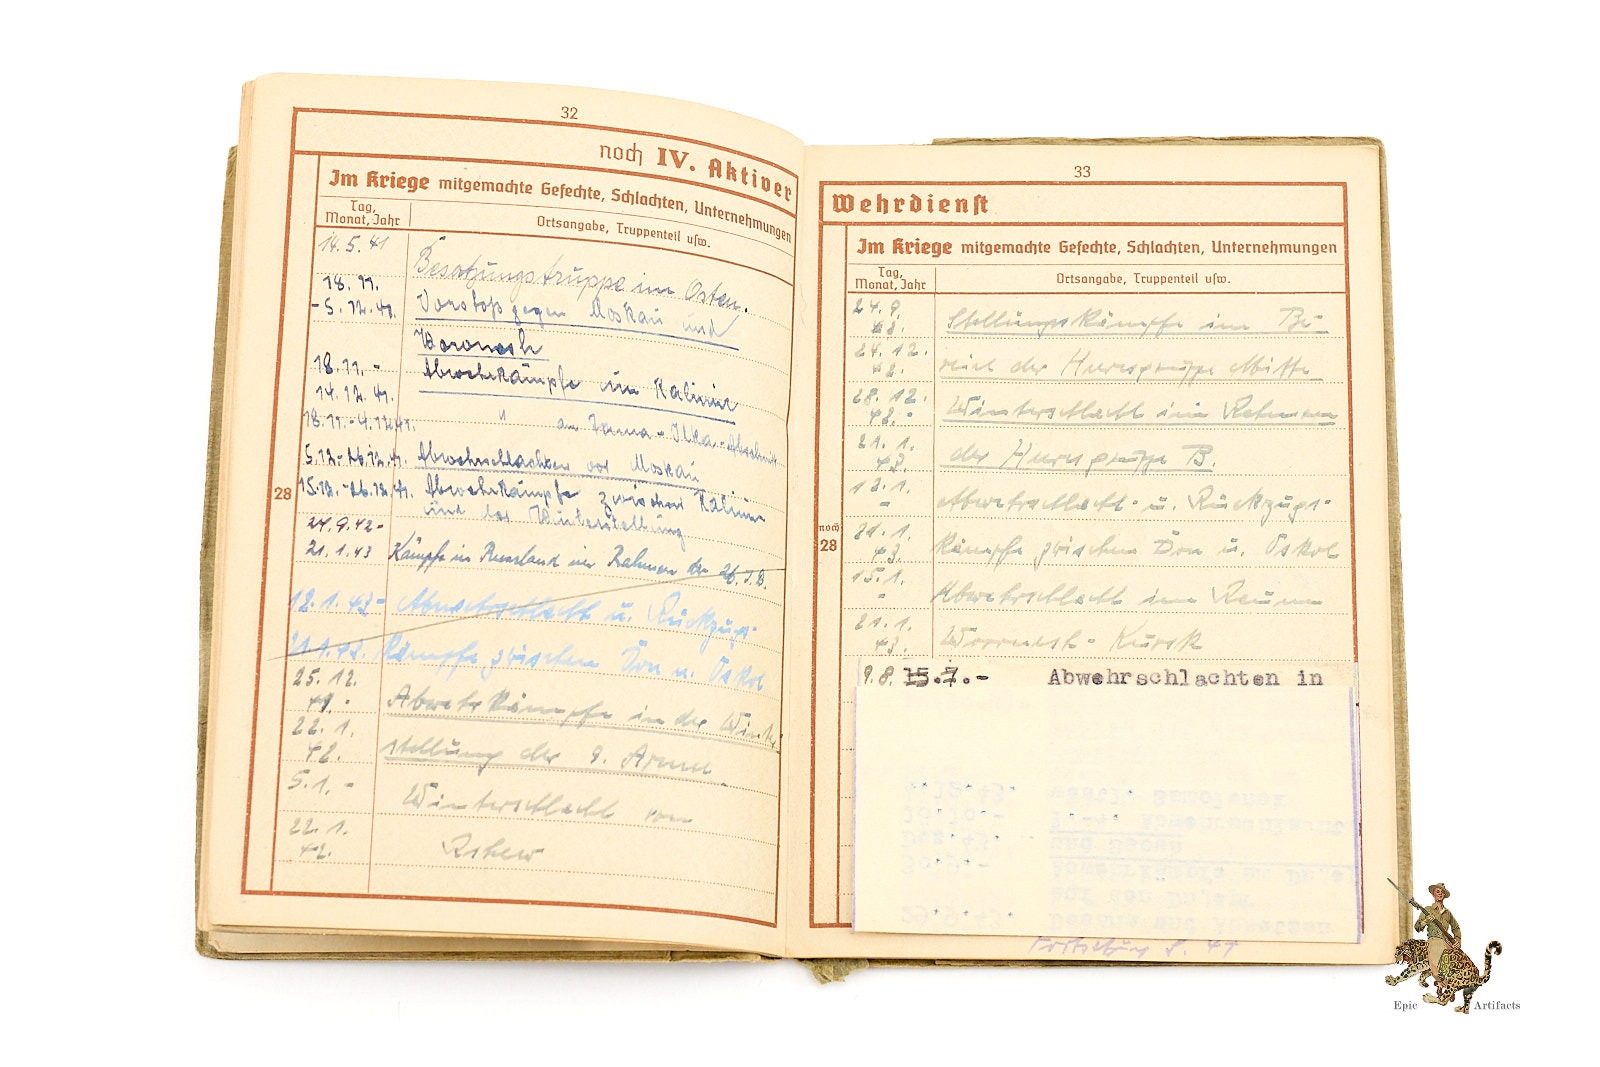 32
noch IV. Aktiver
Im Kriege mitgemachte Gefechte, Schlachten, Unternehmungen
Tag, Monat, Jahr
Ortsangabe, Truppenteil usw.
14.5.41
Besatzungstruppe im Osten.
18.11.
-5.12.41.
Vorstoß gegen Moskau und
Woronesh
18.11.-
Abwehrkämpfe im Kalinin
14.12.41.
18.11.-4.12.41.
" am Lama-
5.12.-26.12.41. Abwehrschlachten vor Moskau
28
15.12.-26.12.41. Abwehrkämpfe zwischen Kalinin
und der Winterstellung
24.9.42-
21.1.43 Kämpfe in Russland im Rahmen der 26.I.D.
12.1.43- Abwehrschlacht u. Rückzugs-
21.1.43. kämpfe zwischen Don u. Oskol
25.12.
41.-
Abwehrkämpfe in der Winter
22.1.
42.
stellung der 9. Armee
5.1.-
Winterschlacht von
22.1.
42.
Rshew
33
Wehrdienst
Im Kriege mitgemachte Gefechte, Schlachten, Unternehmungen
Tag, Monat, Jahr
Ortsangabe, Truppenteil usw.
24.9.
42.
Stellungskämpfe im Be-
24.12.
42.
reich der Heeresgruppe Mitte
28.12.
42.-
Winterschlacht im Rahmen
21.1.
43.
der Heeresgruppe B.
12.1.
-
Abwehrschlacht- u. Rückzugs-
noch
28
21.1.
43.
kämpfe zwischen Don u. Oskol
15.1.
-
Abwehrschlacht im Raum
21.1.
43.
Woronesh-Kursk
9.8. 15.7.- Abwehrschlachten in
Fortsetzung S. 47
Epic Artifacts